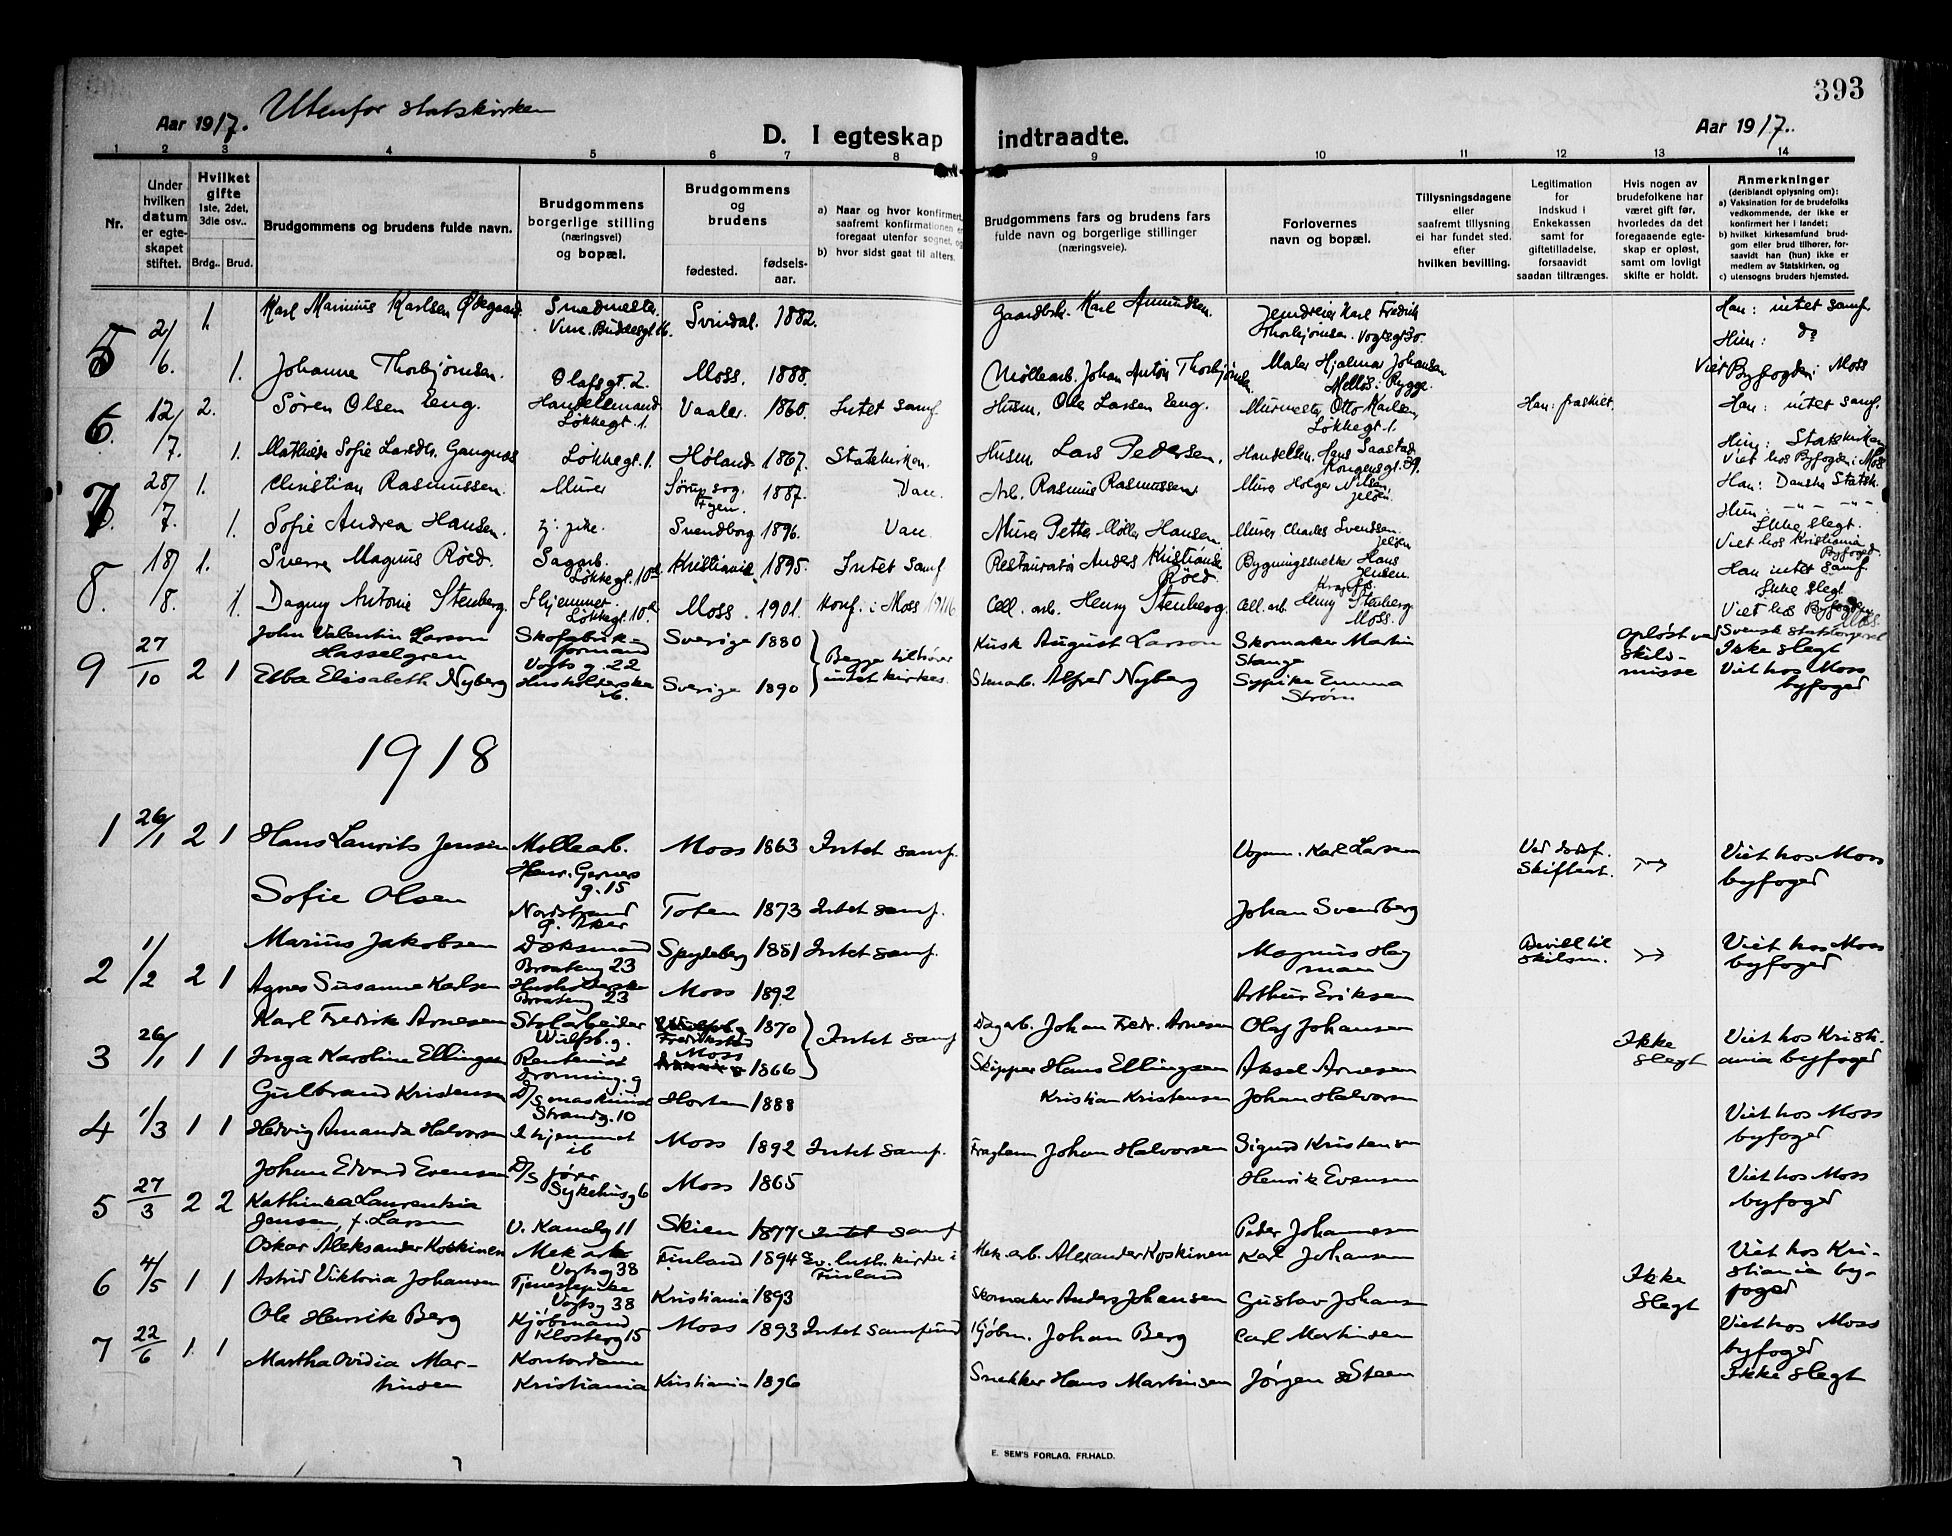 393
Aar 1917.
Utenfor statskirken
D. I egteskap indtraadte.
Aar 1917.
1 2 3 4 5 6 7 8 9 10 11 12 13 14
Nr.
Under hvilken datum er egteskapet stiftet.
Hvilket gifte
1ste, 2det, 3die osv..
Brdg.. Brud.
Brudgommens og brudens fulde navn.
Brudgommens borgerlige stilling (næringsvei) og bopæl.
Brudgommens og brudens
fødested.
fødsels-aar.
a) Naar og hvor konfirmert,
saafremt konfirmationen
foregaat utenfor sognet, og
b) hvor sidst gaat til alters.
Brudgommens fars og brudens fars
fulde navn og borgerlige stillinger
(næringsveie).
Forlovernes
navn og bopæl.
Tillysningsdagene
eller
saafremt tillysning
ei har fundet sted,
efter
hvilken bevilling.
Legitimation
for
Indskud i
Enkekassen
samt for
giftetilladelse,
forsaavidt
saadan tiltrænges.
Hvis nogen av
brudefolkene har
været gift før,
hvorledes da det
foregaaende egte-
skap er opløst,
samt om lovligt
skifte er holdt.
Anmerkninger
(deriblandt oplysning om):
a) Vaksination for de brudefolks
vedkommende, der ikke er
konfirmert her i landet;
b) hvilket kirkesamfund brud-
gom eller brud tilhører, for-
saavidt han (hun) ikke er
medlem av Statskirken, og
c) utensogns bruders hjemsted.
5 21/6. 1. Karl Marinius Karlsen Svindal. 1882. Gaardbr. Karl Amundsen. Karl Fredrik Thorbjørnsen. Vogtsgt 30. Han: intet samf.
Hun: do
1. Johanne Thorbjørnsen. Olafsgt. 2. Moss. 1888. Møllearb. Johan Anton Thorbjørnsen Maler Hjalmar Johansen Melløs: Rygge. Viet Byfogden i Moss
6. 12/7. 2. Søren Olsen Eeng. Handelsmand Løkkegt. 1. Vaaler. 1860. Intet samf Husm. Ole Larsen Eeng. Murmester Otto Karlsen, Løkkegt. 1. Han: fraskilt. Han: intet samf.
1. Mathilde Sofie Larsdtr. Løkkegt. 1. Høland 1867. Statskirken. Husm. Lars Pedersen. Handelsm. Hans Saastad Kongensgt. 39. Hun: Statskirken
Viet hos Byfogden i Moss
7 28/7. 1. Christian Rasmussen. Murer Fyen. 1887. Arb. Rasmus Rasmussen Murer Holger Nilsen, Jeløen. Han: Danske Statsk.
1. Sofie Andrea Hansen. Svendborg 1896. Murer Petter Møller Hansen. Murer Charles Svendsen Jeløen Hun: - " - " -
Ikke slegt.
Viet hos Kristiania Byfoged.
8. 18/8. 1. Sverre Magnus Røed. Sagarb. Løkkegt. 10a Kristiania. 1895. Intet Samf Restauratør Anders Kristiansen Røed. Bygningssnekker Hans Jensen. Han intet samf
Ikke slegt
1. Dagny Antonie Stenberg. I hjemmet. Løkkegt. 10a Moss. 1901. Konf. i Moss 1916 Cell. arb. Henry Stenberg. Cell. arb. Henry Stenberg Moss. Viet hos Byfogden Moss
9 27/10 2 1 John Valentin Larson Hasselgren Skofabrik-formand Vogts g. 22 Sverige 1880 Begge tilhører intet kirkes. Kusk August Larson Skomaker Martin Stange Opløst ved skilsmisse Svensk statsborger
Ikke slegt
Ebba Elisabeth Nyberg Husholderske ib. Sverige 1890 Stenarb. Alfred Nyberg Sypike Emma Strøm Viet hos Moss byfoged
1918
1 26/1 2 1 Hans Laurits Jensen Møllearb. Henr. Gerners g. 15 Moss 1863 Intet samf. Vognm. Karl Larsen Ved dødsf. Skifteat. Viet hos Moss byfoged
Sofie Olsen Nordstrand Aker Toten 1873 Intet samf. Johan Svendberg
2 1/2 2 1 Marius Jakobsen Dæksmand Braateng 23 Spydeberg 1881 Intet samf. Magnus Hagman Bevill til skilsm. Viet hos Moss byfoged
Agnes Susanne Karlsen Husholderske Braateng 23 Moss 1892 Arthur Eriksen
3 26/1 1 1 Karl Fredrik Arnesen Stolarbeider Wulfsb. g. Fredrikstad 1870 Intet samf Dagarb. Johan Fredr. Arnesen Olaf Johansen Ikke slegt Viet hos Kristiania byfoged
Inga Karoline Ellingsen Rentenist Dronning. g Moss 1866 Skipper Hans Ellingsen Aksel Arnesen
4 1/3 1 1 Gulbrand Kristensen D/s maskinist Strandg. 10 Horten 1888 Kristian Kristensen Johan Halvorsen Viet hos Moss byfoged
Hedvig Amanda Halvorsen I hjemmet ib Moss 1892 Intet samf. Johan Halvorsen Sigurd Kristensen
5 27/3 2 2 Johan Edvard Evensen D/s fører Sykehusg 6 Moss 1865 Henrik Evensen Viet hos Moss byfoged
Kathinka Laurentzia Jensen, f. Larsen V. Kanalg 11 Skien 1877 Intet samf Peder Johannesen
6 4/5 1 1 Oskar Aleksander Koskinen Mek arb Vogtsg 38 Finland 1894 Ev. luth. kirke i Finland Mek. arb. Alexander Koskinen Karl Johansen Ikke slegt Viet hos Kristiania byfoged
Astrid Viktoria Johansen Tjenestepike Vogtsg 38 Kristiania 1893 Skomaker Anders Johansen Gustav Johansen
7 22/6 1 1 Ole Henrik Berg Kjøbmand Klosterg 15 Moss 1893 Intet samfund Kjøbm. Johan Berg Carl Martinsen Viet hos Moss byfoged
Ikke slegt
Martha Ovidia Martinsen Kontordame Kristiania Kristiania 1896 Snekker Hans Martinsen Jørgen Steen
E. SEM'S FORLAG, FR.HALD.